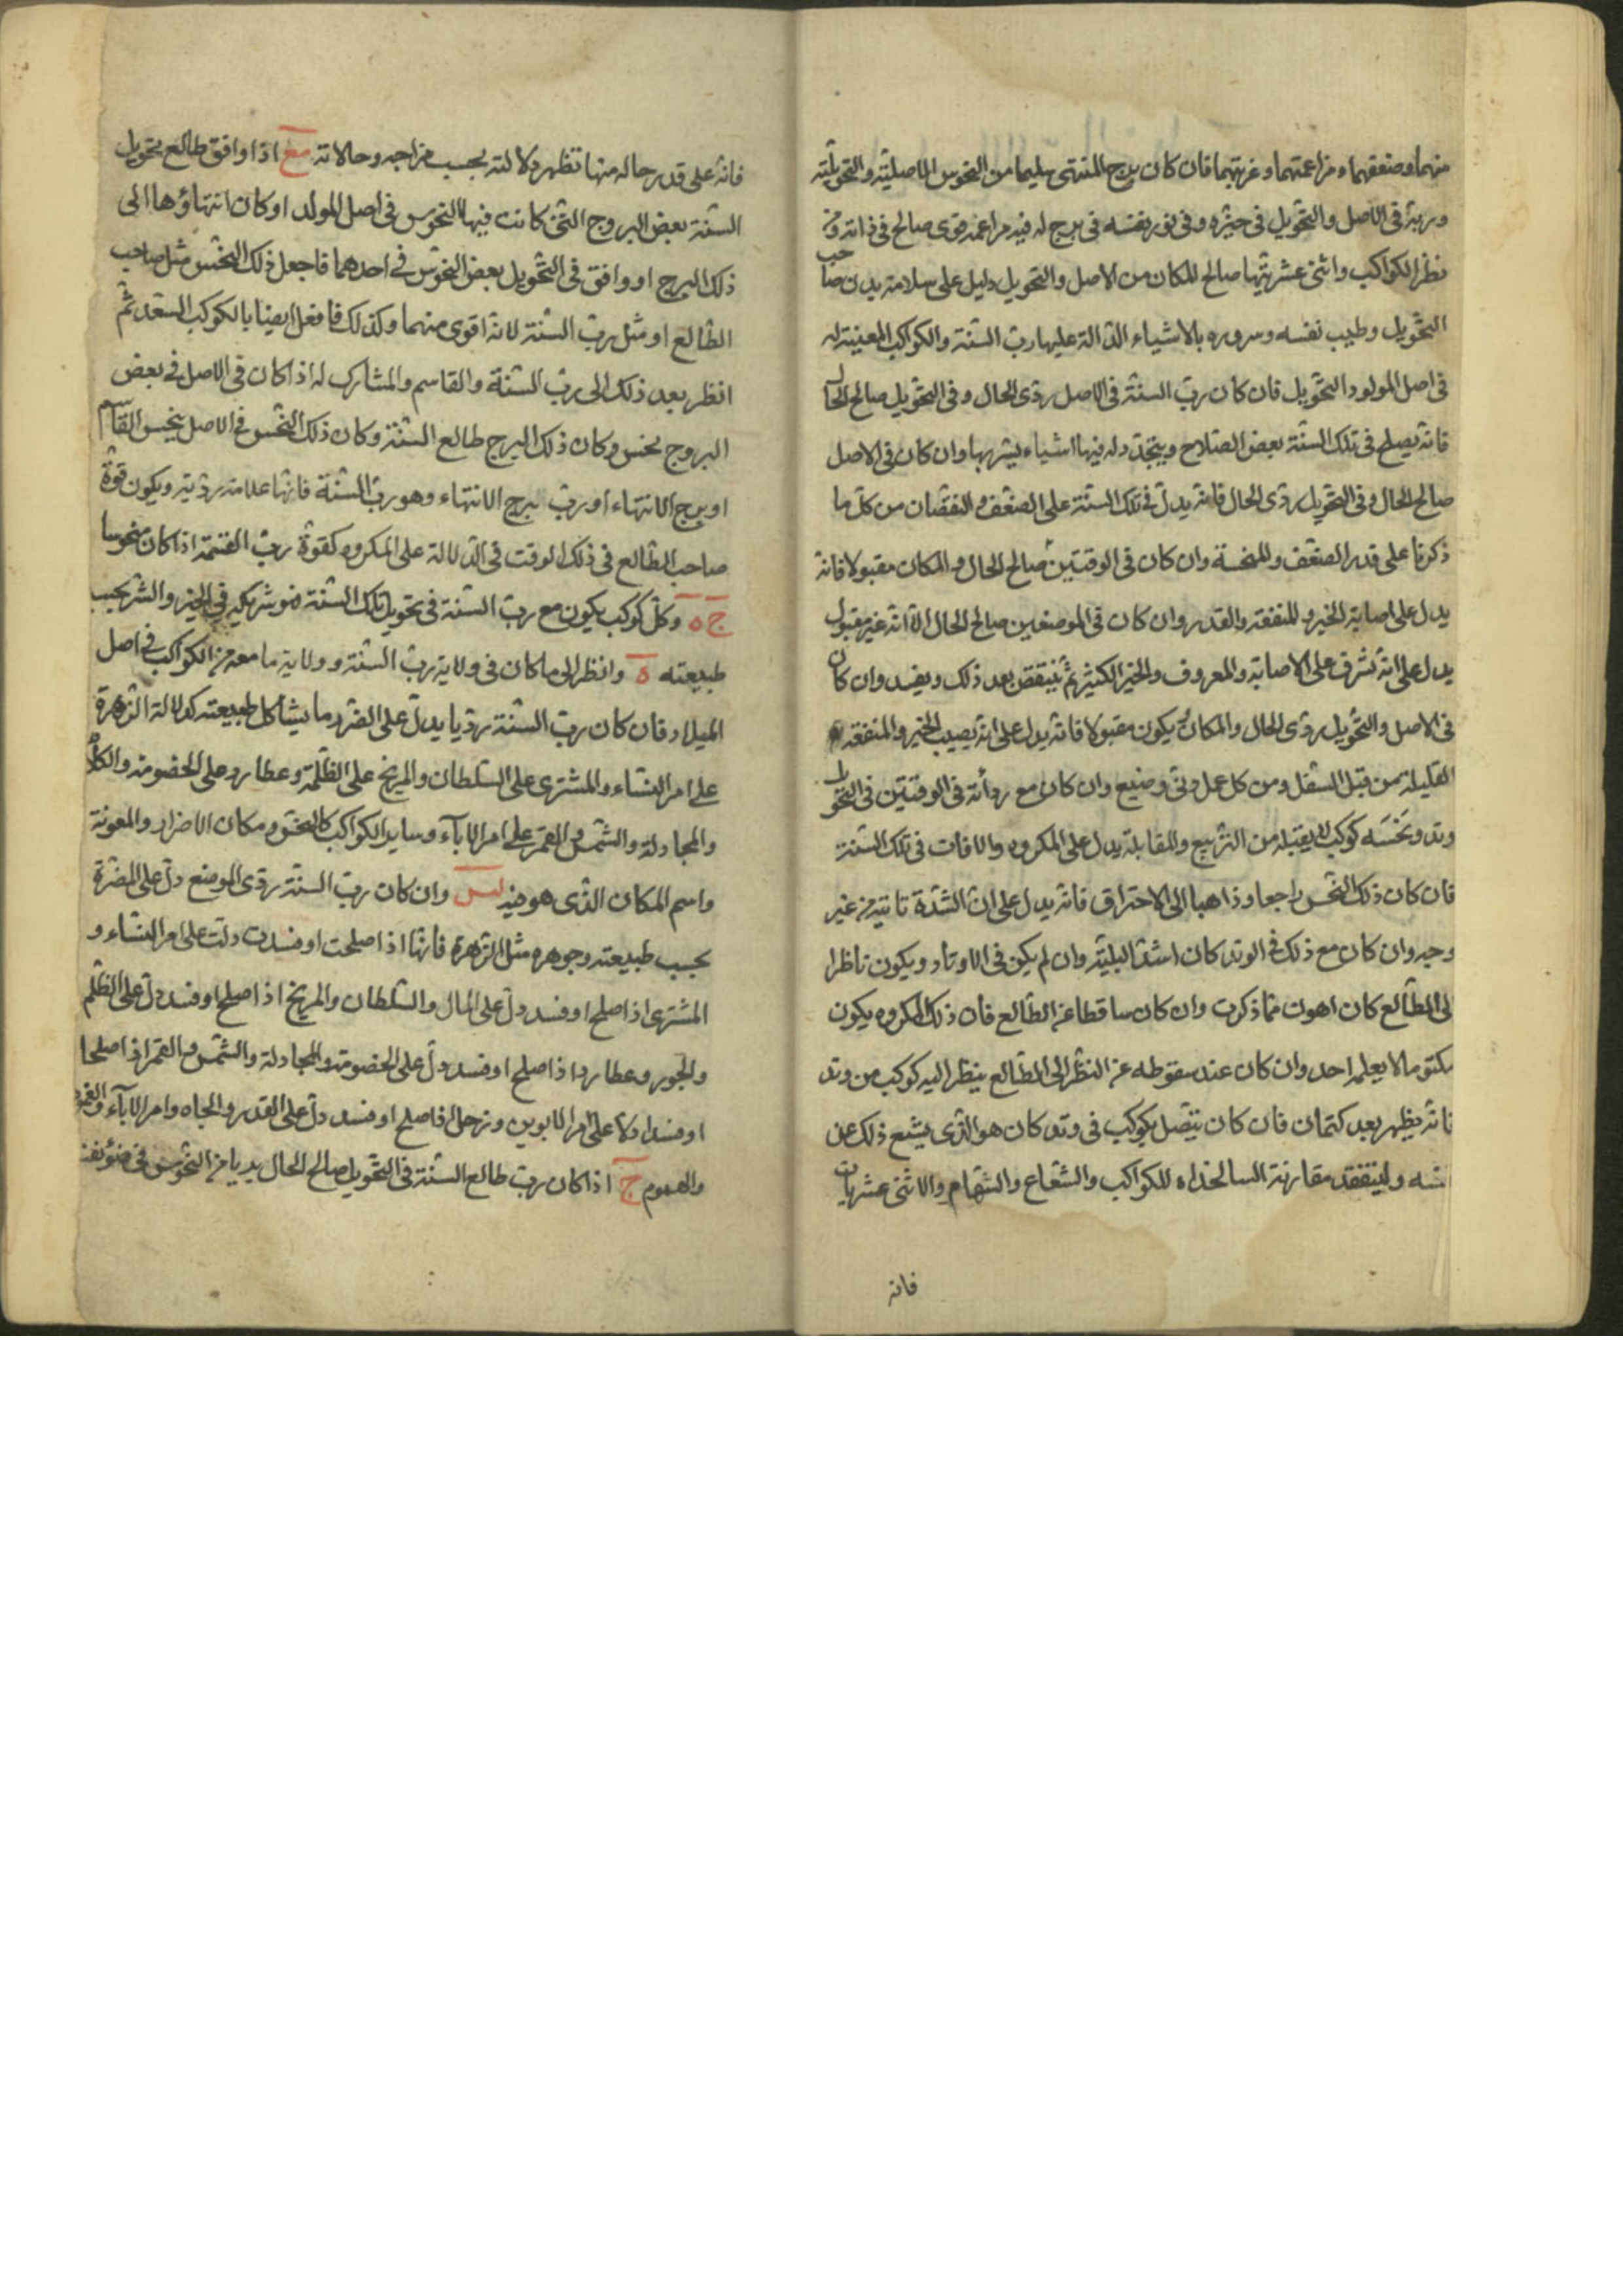 منهما وضعفهما ومزاعمتهما وغربتهما فان كان برج المنتهى سليما من النحوس الاصليّة والتحويليّة
وربّه فى الاصل والتحويل فى حيّزه وفى نور نفسه فى برج له فيه مزاعمة قوى صالح فى ذاته ومن
نظر الكواكب واثنى عشريتهما صالح المكان من الاصل والتحويل دليل على سلامة بدن صاحب
التحويل وطيب نفسه وسروره بالاشياء الدالة عليها ربّ السنة والكواكب المعينة له
فى اصل المولود التحويل فان كان ربّ السنة فى الاصل ردى الحال وفى التحويل صالح الحال
فانه يصلح فى تلك السنة بعض الصلاح ويتجدّد له فيها اشياء يشر بها وان كان فى الاصل
صالح الحال وفى التحويل ردى الحال فانه يدلّ فى تلك السنة على الضعف والنقصان من كلّ ما
ذكرنا على قدر الضعف والمنحسة وان كان فى الوقتين صالح الحال والمكان مقبولا فانه
يدل على اصابة الخير والمنفعة والقدر وان كان فى الموضعين صالح الحال الّا انه غير مقبول
يدل على انه تشرف على الاصابة والمعروف والخير الكثير ثمّ ينتقض بعد ذلك ويفسد وان كان
فى الاصل والتحويل ردى الحال والمكان يكون مقبولا فانه يدل على انه يصيب الخير والمنفعة
القليلة من قبل السفل ومن كل عمل دنىّ وضيع وان كان مع ردائته فى الوقتين فى التحويل
وتد ونحسه كوكب لا يقبله من التربيع والمقابلة يدل على المكروه والافات فى تلك السنة
فان كان ذلك النحس راجعا وذاهبا الى الاحتراق فانه يدل على انّ الشدة تاتيه من غير
وجه وان كان مع ذلك فى الوتد كان اشدّ البليّة وان لم يكن فى الاوتاد ويكون ناظرا
لى الطالع كان اهون ممّا ذكرت وان كان ساقطا عن الطالع فان ذلك المكروه يكون
مكتوما لا يعلمه احد وان كان عند سقوطه عن النظر الى الطالع ينظر اليه كوكب من وتد
انه يظهر بعد كتمان فان كان يتّصل بكوكب فى وتد كان هو الذى يشيع ذلك عن
نفسه وليتفقد مقارنة السالخداه للكواكب والشعاع والسهام والاثنى عشريات
فانه
فانه على قدر حاله منها تظهر دلالته بحسب مزاجه وحالاته مع اذا وافق طالع تحويل
السنة بعض البروج التى كانت فيها النحوس فى اصل المولد او كان انتهاؤها الى
ذلك البرج او وافق فى التحويل بعض النحوس فى احدهما فاجعل ذلك النحس مثل صاحب
الطالع او مثل ربّ السنة لانه اقوى منهما وكذلك فافعل ايضا بالكوكب السعد ثمّ
انظر بعد ذلك الى ربّ السنة والقاسم والمشارك له اذا كان فى الاصل فى بعض
البروج نحس وكان ذلك البرج طالع السنة وكان ذلك النحس فى الاصل ينحس القاسم
او برج الانتهاء او ربّ برج الانتهاء وهو ربّ السنة فانها علامة رديّة ويكون قوّة
صاحب الطالع فى ذلك الوقت فى الدلالة على المكروه كقوّة ربّ القسمة اذا كان منحوسا
ج ه وكلّ كوكب يكون مع ربّ السنة فى تحويل تلك السنة فهو شريكه فى الخير والشر بحسب
طبيعته ه وانظر الى ما كان فى ولاية ربّ السنة وولاية ما معه من الكواكب فى اصل
الميلاد فان كان ربّ السنة رديا يدلّ على الضّر وما يشاكل طبيعته كدلالة الزهرة
على امر النساء والمشترى على السلطان والمريخ على الظلمة وعطارد على الخصومة والكلام
والمجادلة والشمس والقمر على امر الاباء وساير الكواكب كالنحو ومكان الاضرار والمعونة
واسم المكان الذى هو فيه لس وان كان ربّ السنة ردى الموضع دلّ على المضرة
بحسب طبيعته وجوهره مثل الزهرة فانها اذا صلحت او فسدت دلّت على امر النساء و
المشترى اذا صلح او فسد دلّ على المال والسلطان والمريخ اذا صلح او فسد دلّ على الظلم
والجور وعطارد اذا صلح او فسد دلّ على الخصومة والمجادلة والشمس والقمر اذا صلحا
او فسدا دلّا على امر الابوين وزحل فاصلح او فسد دلّ على القدر والجاه وامر الاباء والغموم
والهموم ج اذا كان ربّ طالع السنة فى التحويل صالح الحال بريا من النحوس فى ضوء نفسه